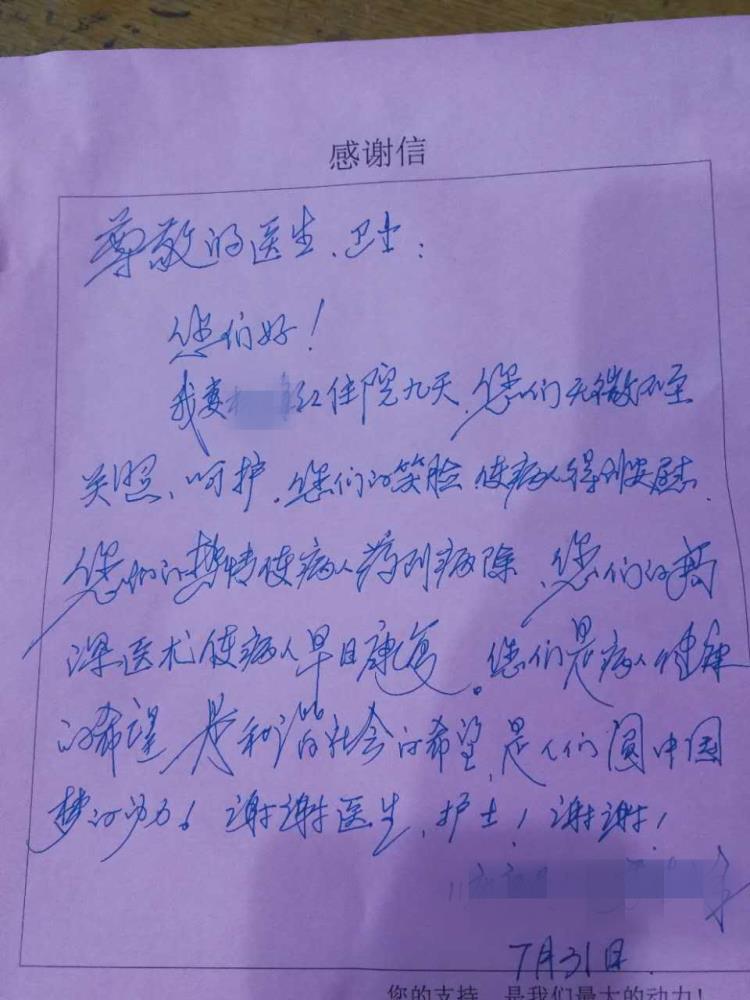 感谢信
尊敬的医生、卫士：
您们好！
我妻红住院九天、您们无微不至
关照、呵护、您们的笑脸使病人得到安慰、
您们的热情使病人药到病除、您们的高
深医术使病人早日康复。您们是病人健康
的希望 是和谐社会的希望，是人们圆中国
梦的动力！谢谢医生、护士！谢谢！
7月31日.
您的支持，是我们最大的动力！